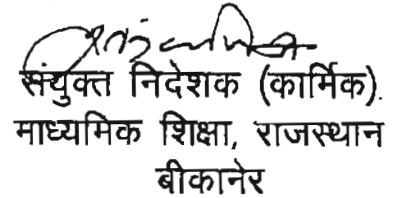 संयुक्त निदेशक (कार्मिक).
माध्यमिक शिक्षा, राजस्थान
बीकानेर